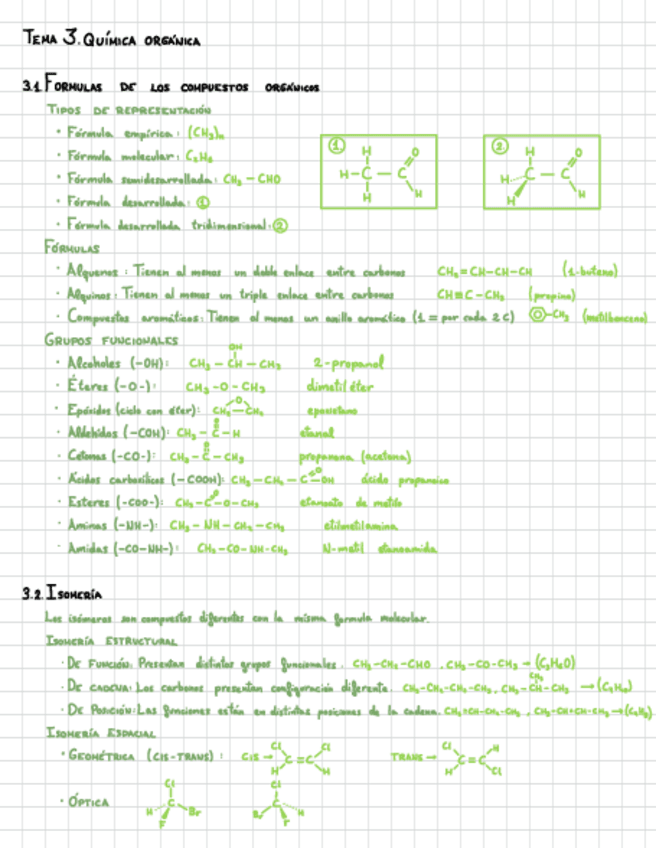 TEMA 3. QUÍMICA ORGÁNICA
3.1 FORMULAS DE LOS COMPUESTOS ORGÁNICOS
TIPOS DE REPRESENTACIÓN
· Fórmula empírica: (CH₂)ₙ
· Fórmula molecular:
· Fórmula semidesarrollada: CH₃ – CHO
· Fórmula desarrollada: ①
· Fórmula desarrollada tridimensional: ②
① H O H – C – C H H
② H O H C – C H H
FÓRMULAS
· Alquenos: Tienen al menos un doble enlace entre carbonos CH₂=CH-CH-CH (1-buteno)
· Alquinos: Tienen al menos un triple enlace entre carbonos CH≡C-CH₃ (propino)
· Compuestos aromáticos: Tienen al menos un anillo aromático (1 = por cada 2C) -CH₃ (metilbenceno)
GRUPOS FUNCIONALES
· Alcoholes (-OH): CH₃ – CH – CH₃ OH 2-propanol
· Éteres (-O-): CH₃ -O- CH₃ dimetil éter
· Epóxidos (ciclo con éter): CH₂ O CH₂ epoxietano
· Aldehídos (-COH): CH₃ – C – H O etanal
· Cetonas (-CO-): CH₃ – C – CH₃ O propanona (acetona)
· Ácidos carboxílicos (-COOH): CH₃ – CH₂ – C – OH O ácido propanoico
· Esteres (-COO-): CH₃ – C – O – CH₃ O etanoato de metilo
· Aminas (-NH-): CH₃ – NH – CH₂ – CH₃ etilmetilamina
· Amidas (-CO-NH-): CH₃ – CO – NH – CH₃ N-metil etanoamida
3.2. ISOMERÍA
Los isómeros son compuestos diferentes con la misma formula molecular.
ISOMERÍA ESTRUCTURAL
· DE FUNCIÓN: Presentan distintos grupos funcionales. CH₃-CH₂-CHO , CH₃-CO-CH₃ → (C₃H₆O)
· DE CADENA: Los carbonos presentan configuración diferente. CH₃-CH₂-CH₂-CH₃ , CH₃-CH-CH₃ CH₃ → (C₄H₁₀)
· DE POSICIÓN: Las funciones están en distintas posiciones de la cadena. CH₂=CH-CH₂-CH₃ , CH₃-CH=CH-CH₃ → (C₄H₈).
ISOMERÍA ESPACIAL
· GEOMÉTRICA (CIS-TRANS): CIS → Cl Cl C=C H H TRANS → Cl H C=C H Cl
· ÓPTICA Cl C H Br F Cl C Br H F